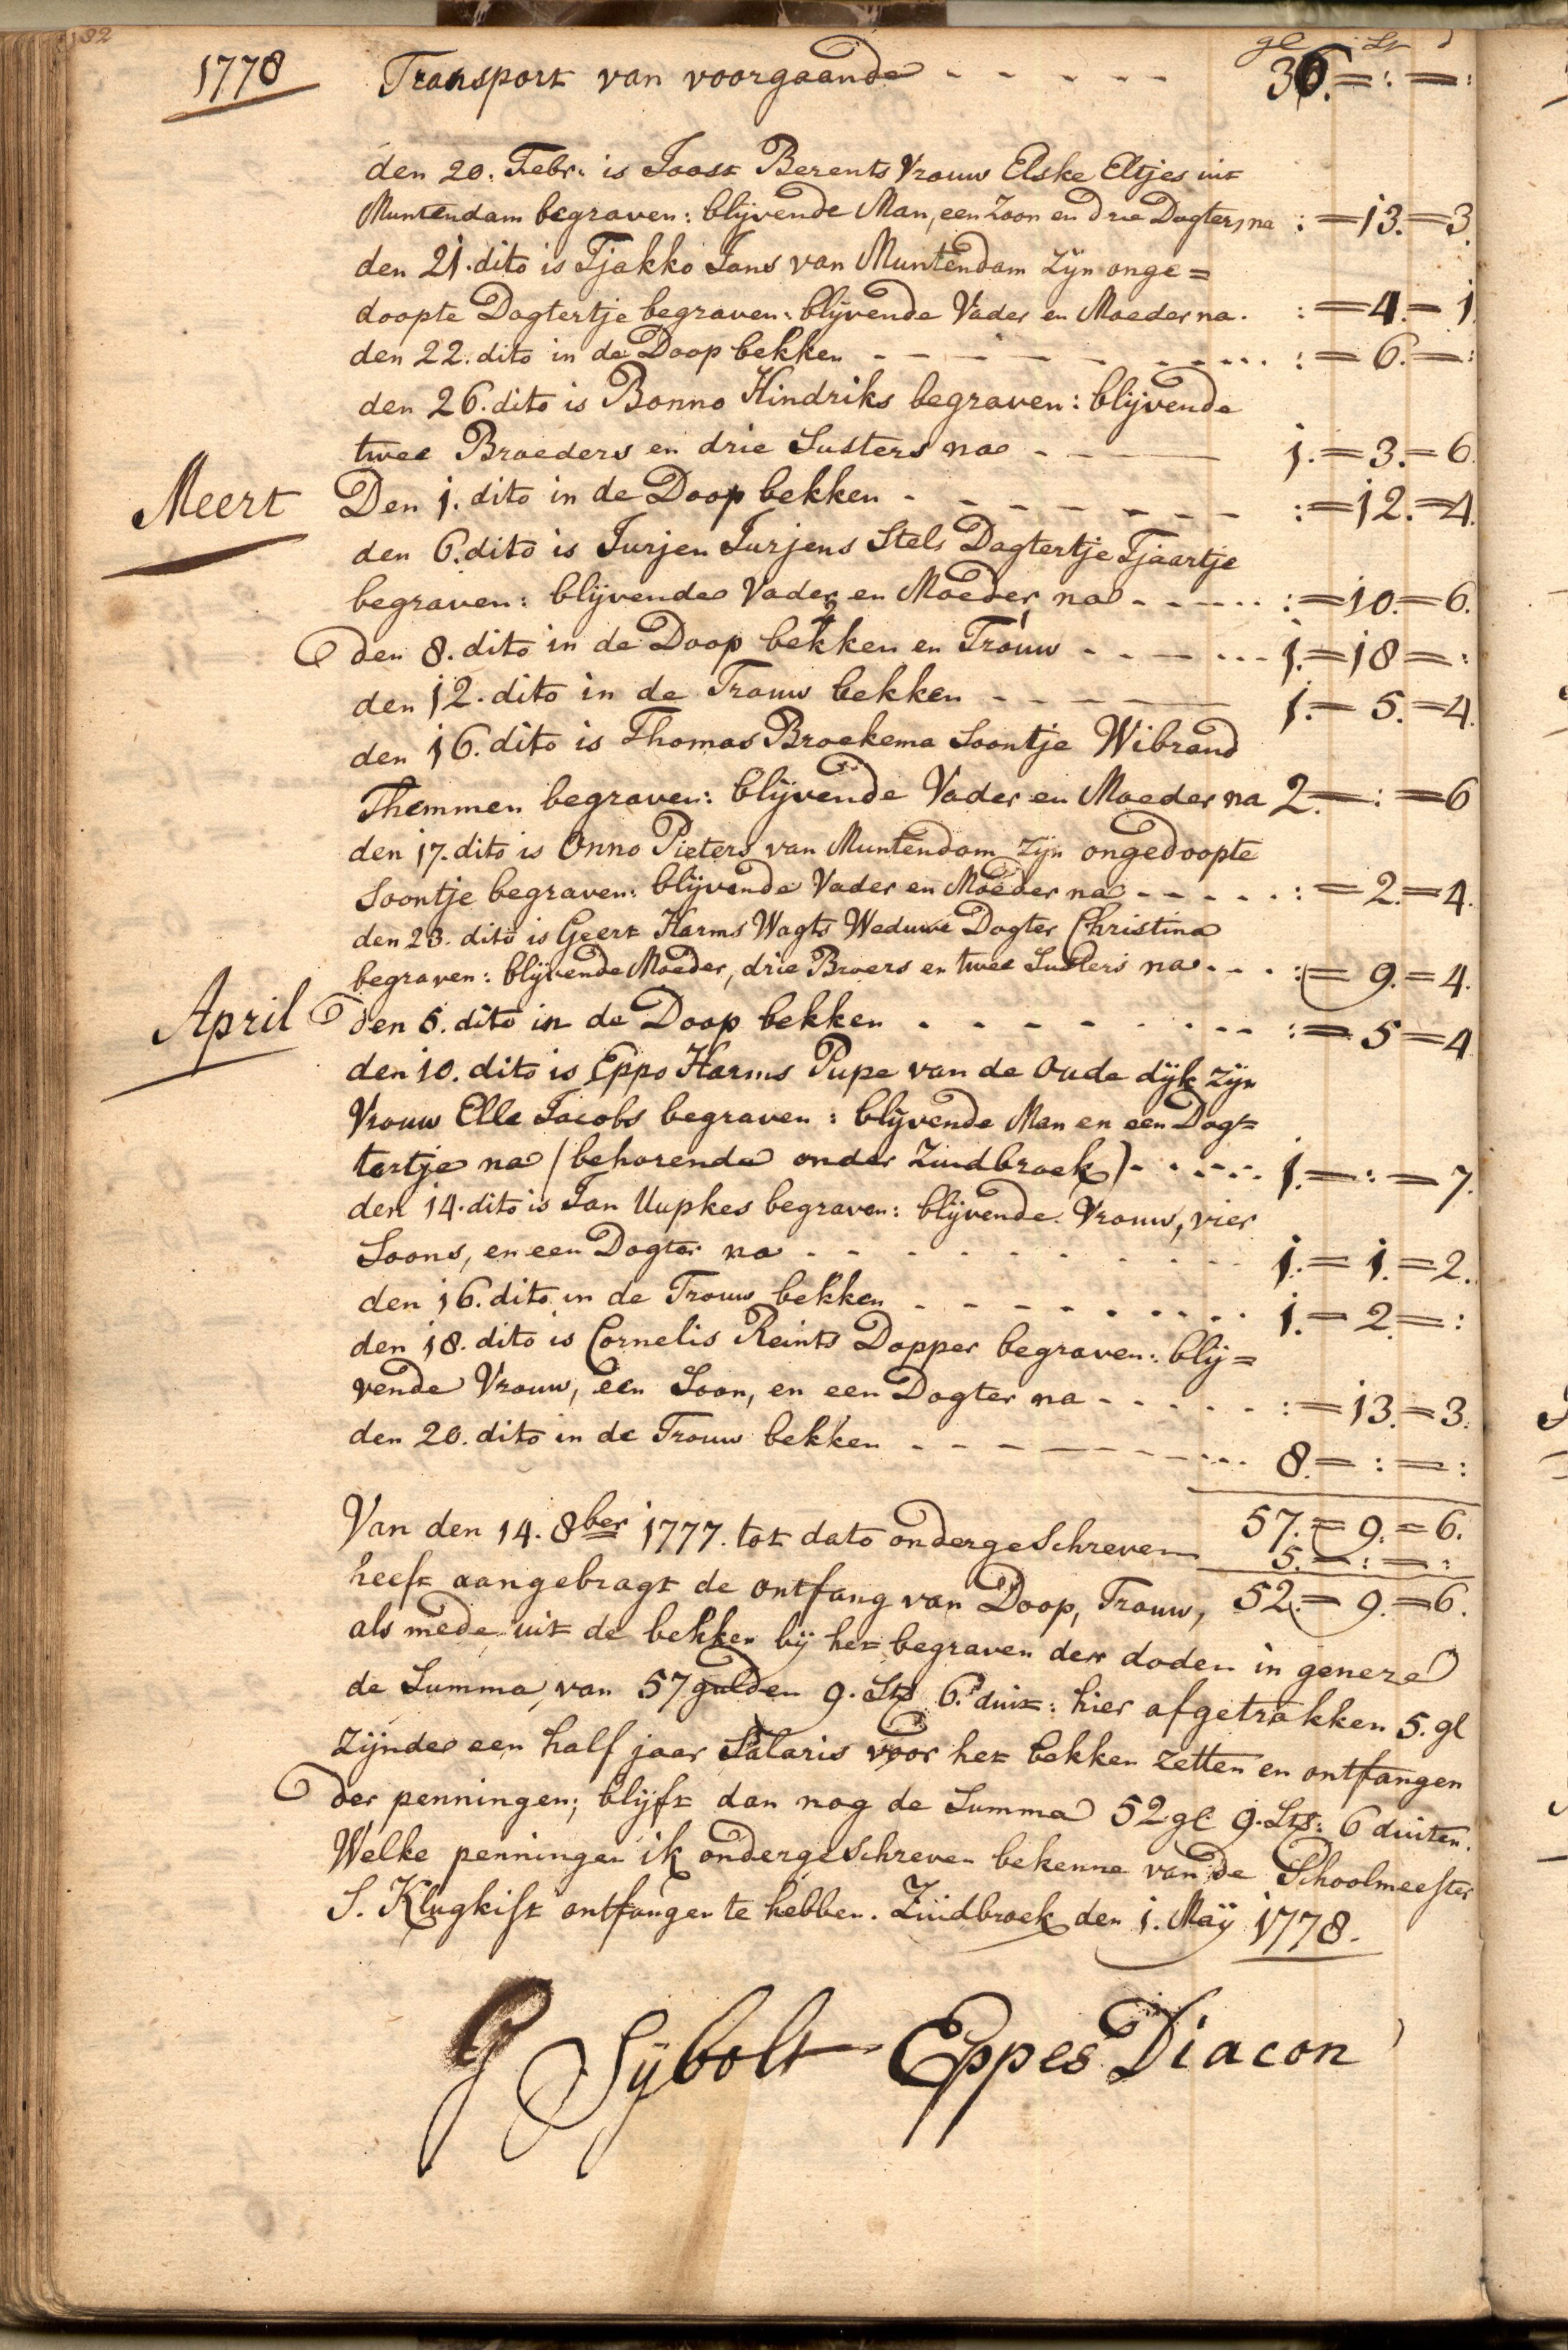 192
gl st d
1778 Transport van voorgaande - - - - - 36.=:=:
den 20. Febr. is Joost Berents Vrouw Elske Eltjes uit
Muntendam begraven: blijvende Man, een Zoon en drie Dogters na :=13.=3.
den 21. dito is Tjakko Jans van Muntendam zijn onge=
doopte Dogtertje begraven: blijvende Vader en Moeder na. :=4.=1.
den 22. dito in de Doop bekken - - - - - - - ... :=6.=:
den 26. dito is Bonno Hindriks begraven: blijvende
twee Broeders en drie Susters na - - — 1.=3.=6.
Meert Den 1. dito in de Doop bekken - - - - - - - :=12.=4.
den 6. dito is Jurjen Jurjens Stels Dagtertje Tjaartje
begraven: blijvende Vader en Moeder na - - - ... :=10.=6.
den 8. dito in de Doop bekken en Trouw - - - — ... 1.=18=:
den 12. dito in de Trouw bekken - - - - — 1.=5.=4.
den 16. dito is Thomas Broekema Soontje Wibrand
Themmen begraven: blijvende Vader en Moeder na 2.=:=6
den 17. dito is Onno Pieters van Muntendam zijn ongedoopte
Soontje begraven: blijvende Vader en Moeder na - - - - - :=2.=4.
den 23. dito is Geert Harms Wagts Weduwe Dogter Christina
begraven: blijvende Moeder, drie Broers en twee Susters na - - - :=9.=4.
April den 5. dito in de Doop bekken - - - - - - - - - :=5=4
den 10. dito is Eppo Harms Pupe van de Oude dijk zijn
Vrouw Elle Jacobs begraven: blijvende Man en een Dog=
tertje na (behorende onder Zuidbroek) - - - - - 1.=:=7.
den 14. dito is Jan Uupkes begraven: blijvende Vrouw, vier
Soons, en een Dogter na - - - - - - - - 1.=1.=2.
den 16. dito in de Trouw bekken - - - - - - - - - 1.=2.=:
den 18. dito is Cornelis Reints Dopper begraven: blij=
vende Vrouw, een Soon, en een Dogter na - - - - - :=13.=3.
den 20. dito in de Trouw bekken - - - — - - - ... 8.=:=:
57.=9.=6.
Van den 14. 8ber 1777. tot dato ondergeschreven 5.=:=:
heeft aangebragt de ontfang van Doop, Trouw, 52.=9.=6.
als mede uit de bekken bij het begraven der doden in genere
de Summa van 57 gulden 9. Sts 6. duit: hier afgetrokken 5. gl
Zijnde een half jaar Salaris voor het bekken zetten en ontfangen
der penningen; blijft dan nog de Summa 52 gl. 9. Sts: 6 duiten.
Welke penningen ik ondergeschreven bekenne van de Schoolmeester
S. Klugkist ontfangen te hebben. Zuidbroek den 1. Maÿ 1778.
Sÿbolt Eppes Diacon